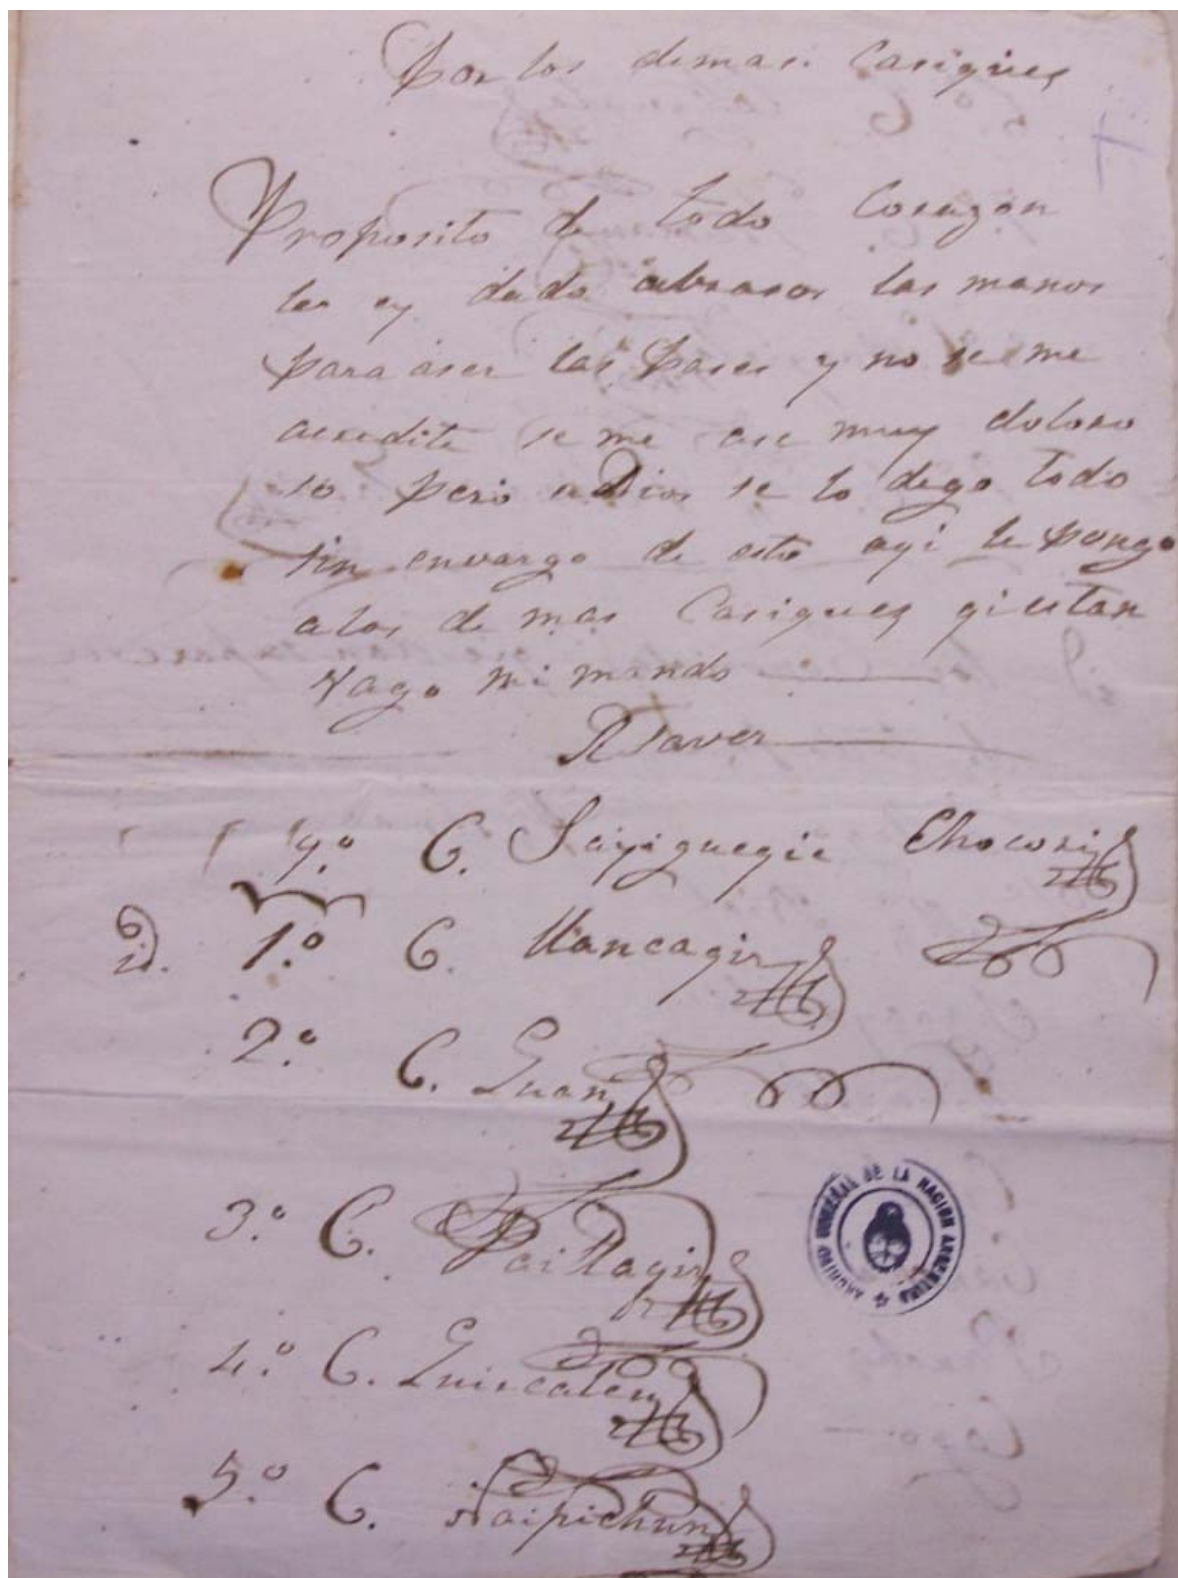 Por los demas Casiques
Proposito de todo Corazon
les ey dado abrasos las manos
para aser las Pases y no se me
acredite se me ase muy doloro
so pero a Dios se lo dego todo
sin envargo de esto ayi le pongo
a los de mas Casiques qi estan
Vago mi mando
A Saver
1º C. Sayigueqie Chocori
1º C. Llancaqir
2º C. Luan
3º C. Paillaqir
4º C. Luiscalen
5º C. Naipichun
ARCHIVO GENERAL DE LA NACION ARGENTINA